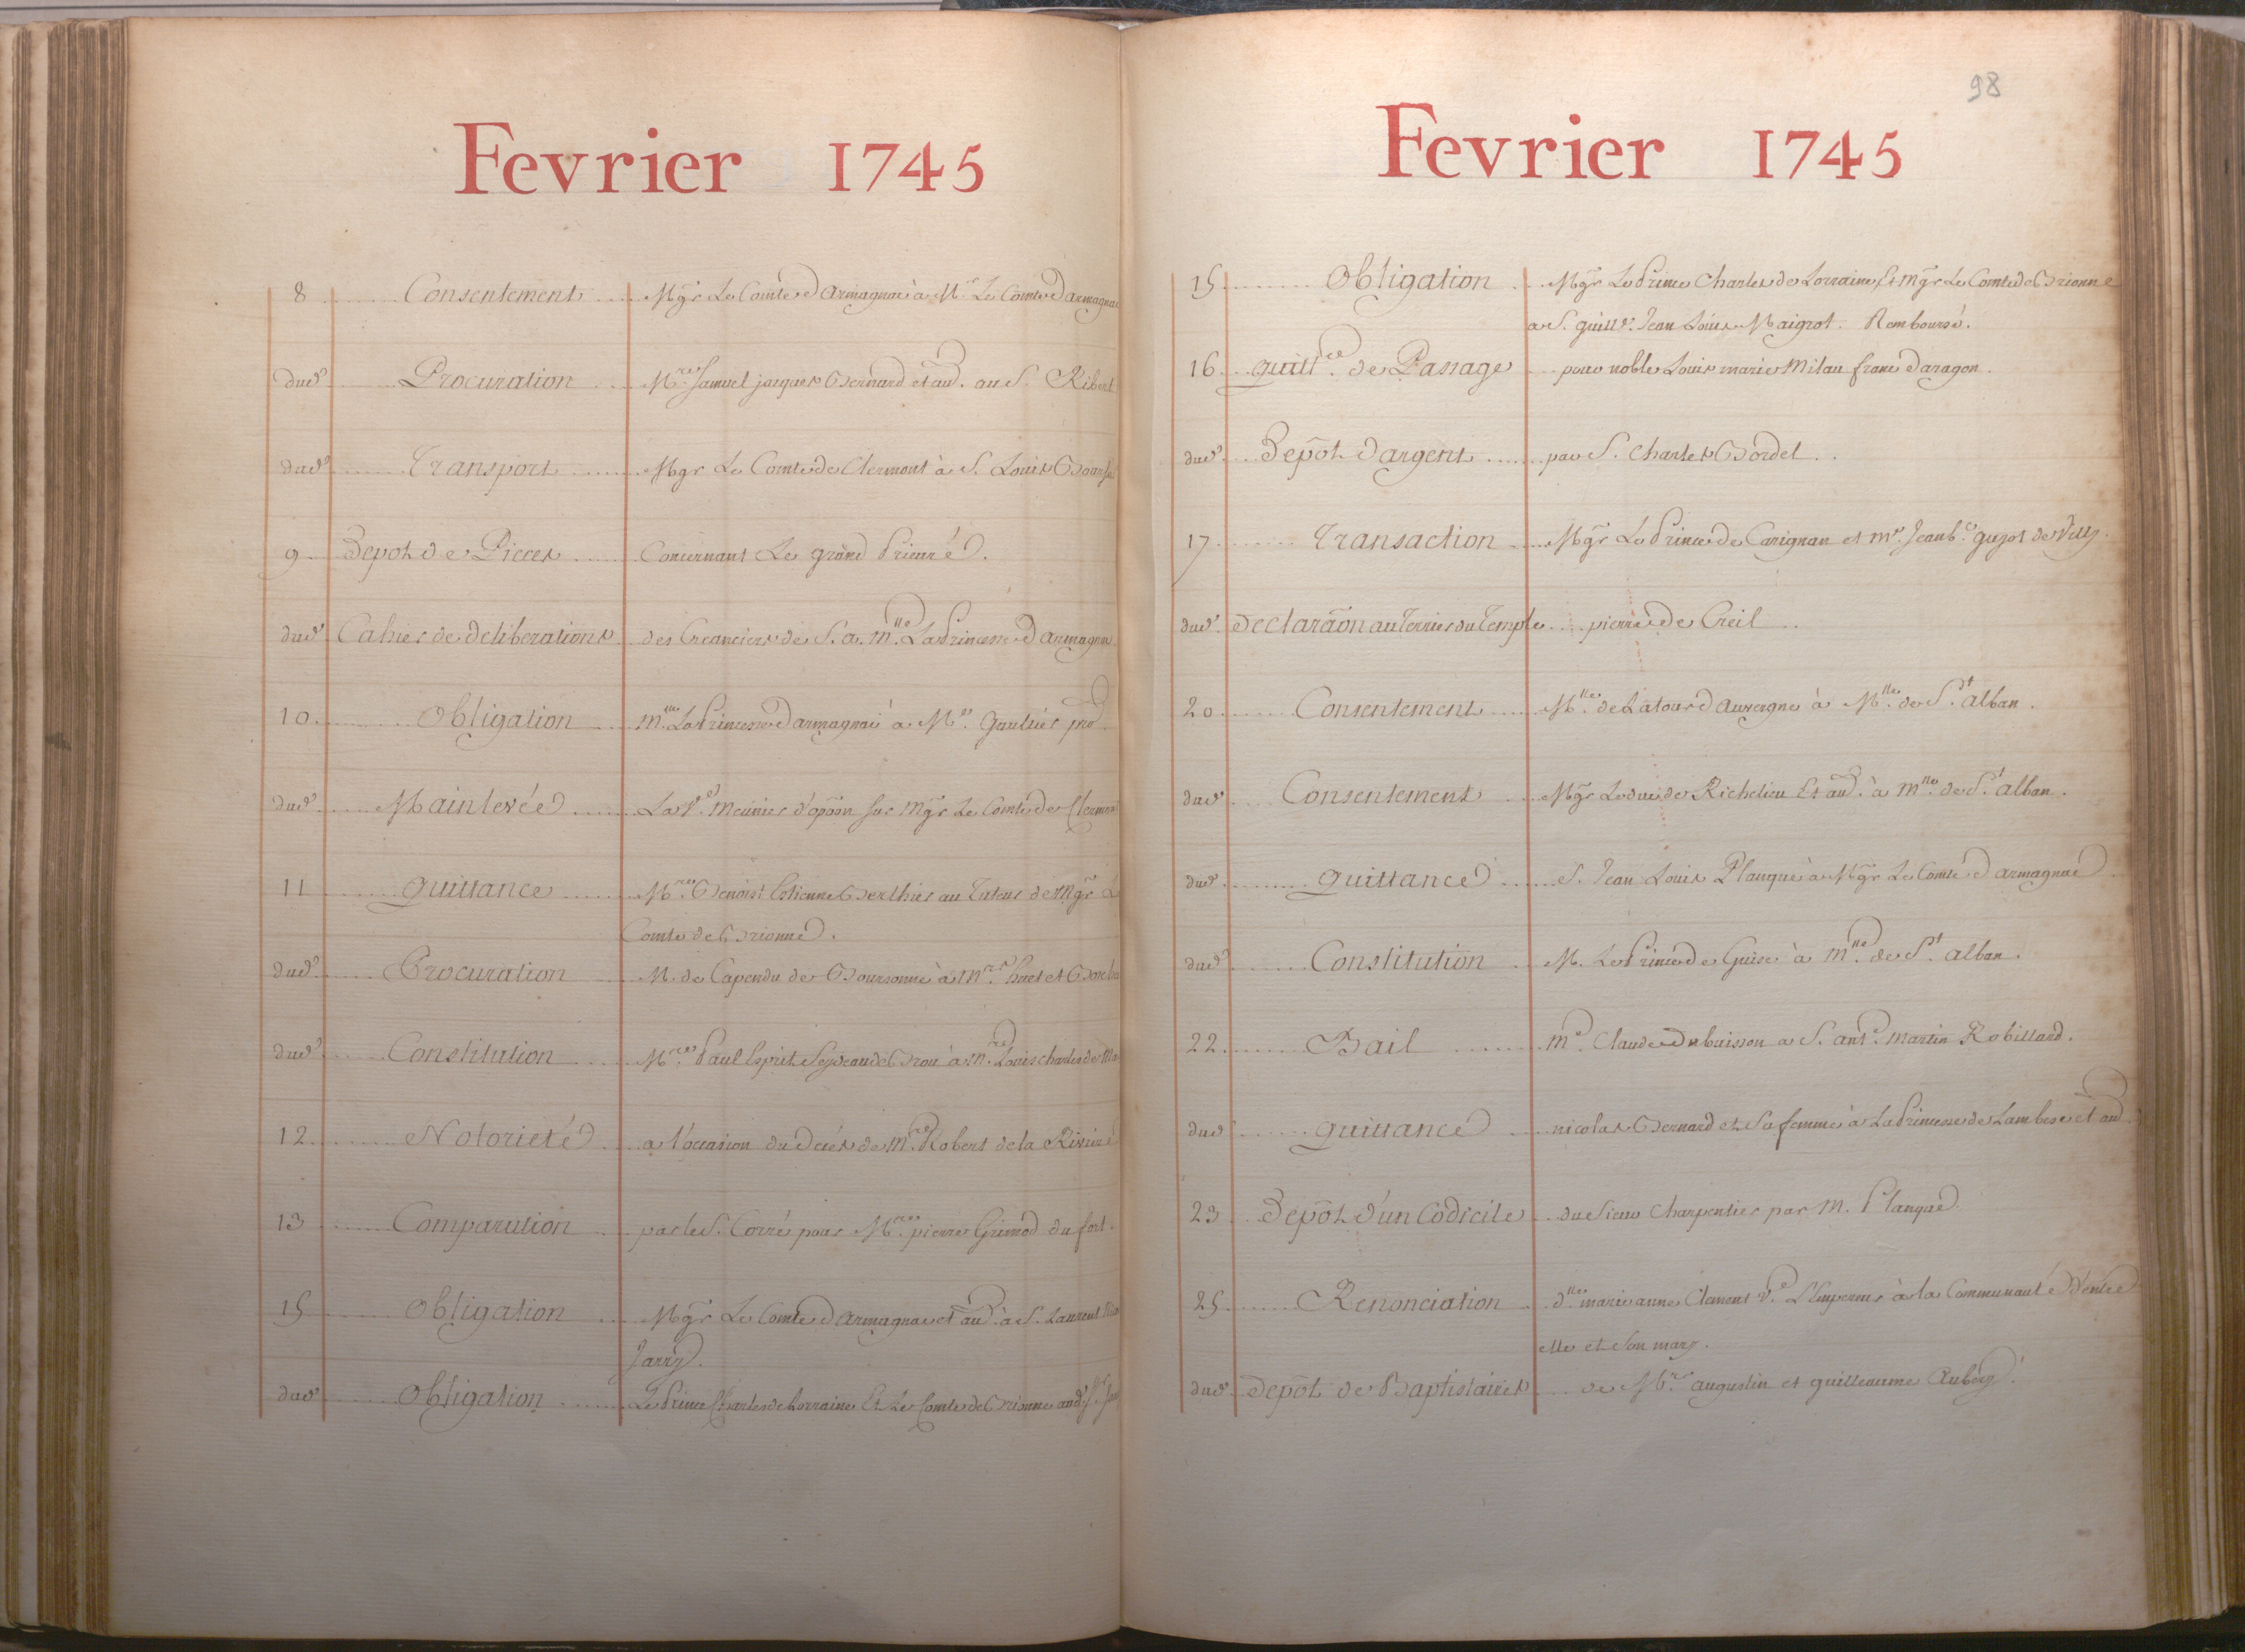 Fevrier 1745
8 Consentement Mgr Le Comte d'armagnac à Mr Le Comte d'armagnac
dud. Procuration Mre Samuel jacques Bernard et au. au S. Ribert
dud. Transport Mgr Le Comte de Clermont à S. Louis
9 Depot de Pieces Concernant Le grand Prieuré.
dud. Cahier de deliberations des Creanciers de S. a. Mlle La Princesse d'armagnac
10 Obligation Mlle La Princesse d'armagnac à Me Gaultier pro.
dud. Mainlevée La Ve Meunier d'opōon sur Mgr Le Comte de Clermont
11 quittance Mre Benoist Estienne Berthier au Tuteur de Mgr Le
Comte de Brionne.
dud. Procuration M. de Capendu de Boursonne à Mres huet et
dud. Constitution Mre Paul Esprit Feydeau de Brou à M. Louis charles de
12 Notorieté a l'occasion du Deces de Mre Robert de la Riviere
13 Comparution par le S. Corré pour Mre pierre Grimod du fort.
15 Obligation Mgr Le Comte d'armagnac et au. à S. Laurent
Jarry.
dud. Obligation Le Prince Charles de Lorraine Et Le Comte de Brionne aud. S.
98
Fevrier 1745
15 Obligation Mgr Le Prince Charles de Lorraine Et Mgr Le Comte de Brionne
a S. guille. Jean Louis Maigrot. Remboursé.
16 quitt.ce de Passage pour noble Louis marie Milan franc d'aragon.
dud. Depôt d'argent par S. Charles Bordel.
17 Transaction Mgr Le Prince de Carignan et Me. Jean b.e guyot de Villy.
dud. Declarāon au Terrier du Temple pierre de Creil
20 Consentement Mlle de Latour d'auvergne à Mlle de St alban.
dud. Consentement Mgr Le duc de Richelieu Et au. à Mlle de St alban.
dud. quittance S. Jean Louis Planque à Mgr Le Comte d'armagnac
dud. Constitution M. Le Prince de Guise à Mlle de St alban.
22 Bail Me Claude Dubuisson a S. ant.e Martin Robillard.
dud. quittance nicolas Bernard et Sa femme à La Princesse de Lambesc et au.
23 Depôt d'un Codicile du Sieur Charpentier par M. Planque
25 Renonciation dlle marie anne Clement Ve. L'Empereur à la Communauté d'entre
elle et Son mary.
dud. Depôt de Baptistaires de Mre augustin et guilleaume Aubry.